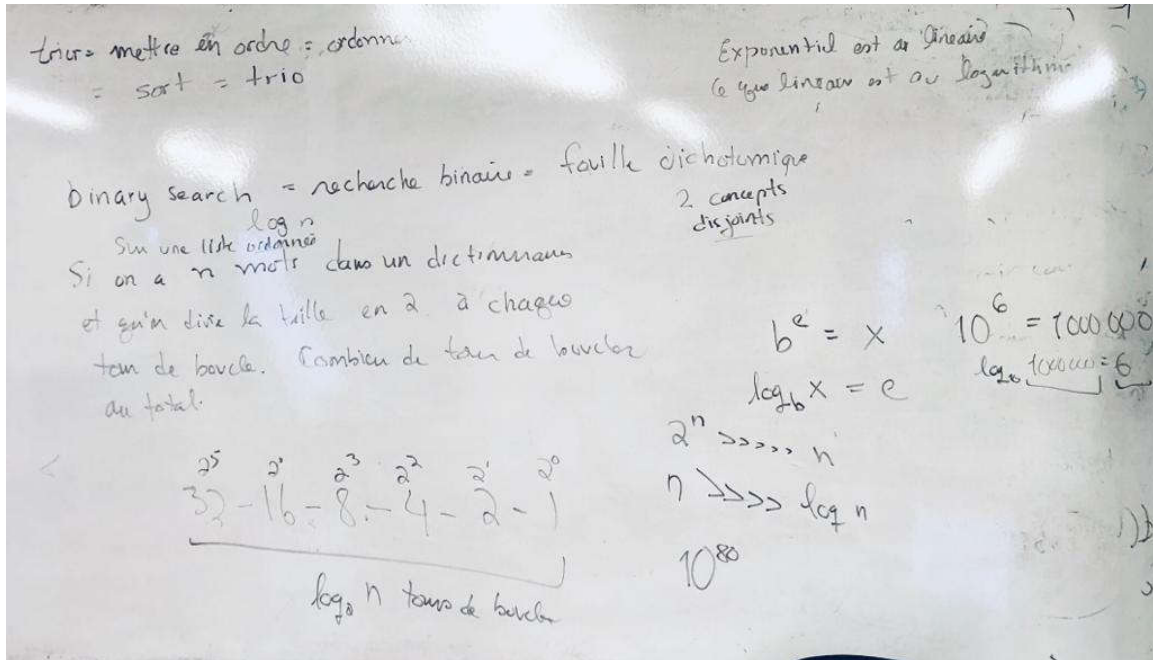 trier = mettre en ordre = ordonner
= sort = trio
Exponentiel est au linéaire
ce que lineaire est au logarithme
binary search = recherche binaire = fouille dichotomique
log n
2 concepts
disjoints
Sur une liste ordonnée
Si on a n mots dans un dictionnaire
et qu'on divise la taille en 2 à chaque
tour de boucle. Combien de tour de boucles
au total.
b^e = x
10^6 = 1000000
log_b x = e
1000000 = 6
2^n >>>>> n
n >>>> log n
10^80
2^5 2^3 2^2 2^1 2^0
32 - 16 - 8 - 4 - 2 - 1
log n tours de boucles